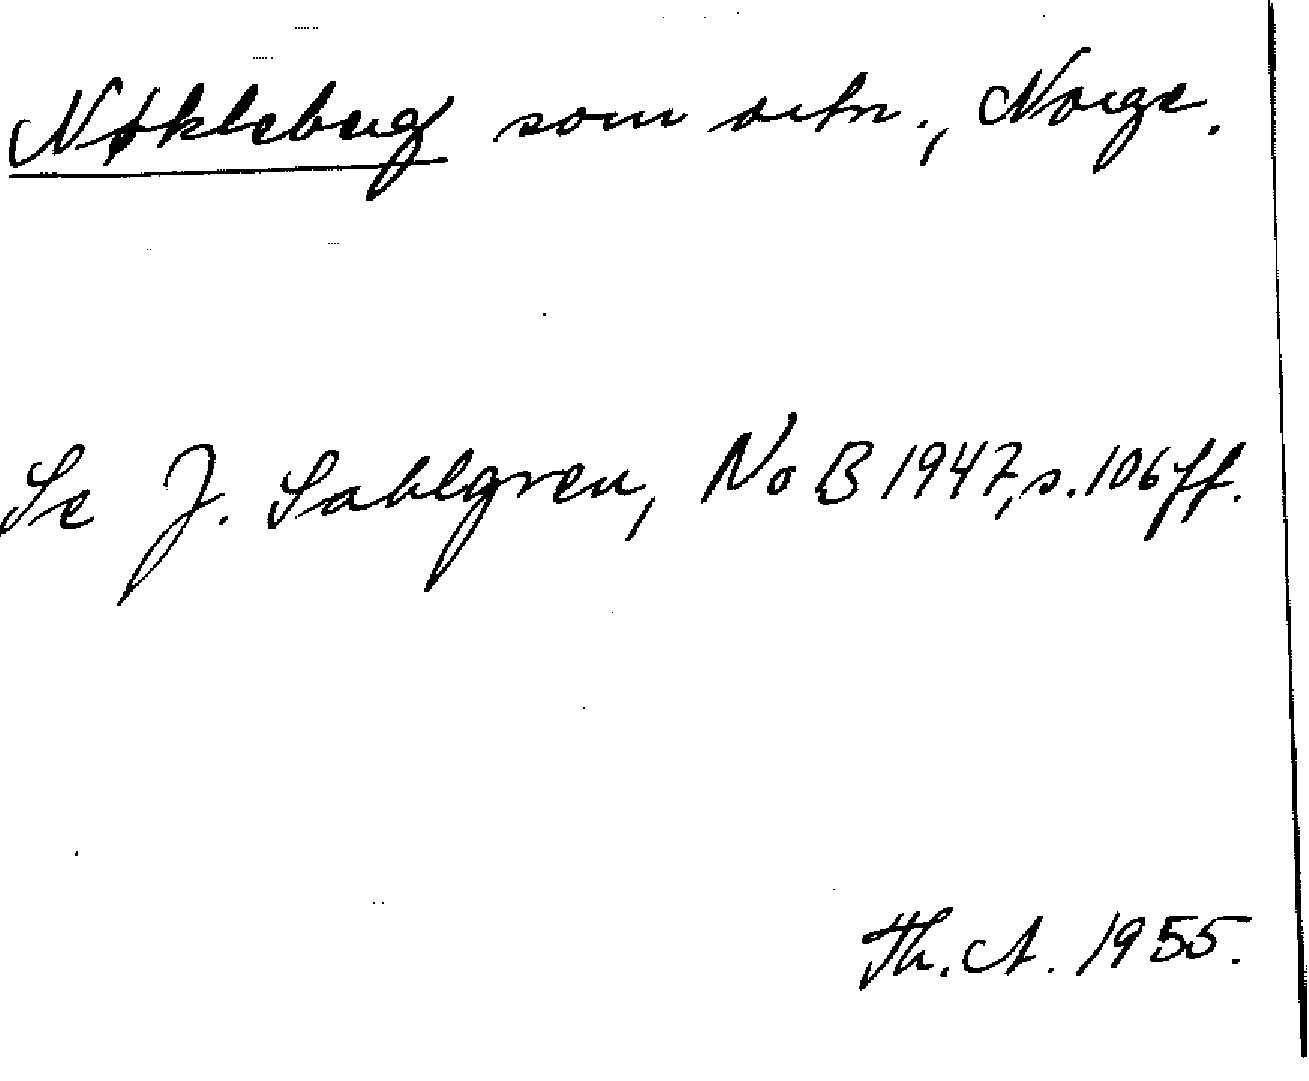 Nøkleberg som ortn., Norge.
Se J. Sahlgren, NoB 1947, s. 106 ff.
Th. A. 1955.